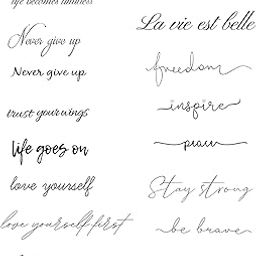 life becomes limitless
Never give up
Never give up
trust your wings
life goes on
love yourself
love yourself first
La vie est belle
freedom
inspire
peace
Stay strong
be brave